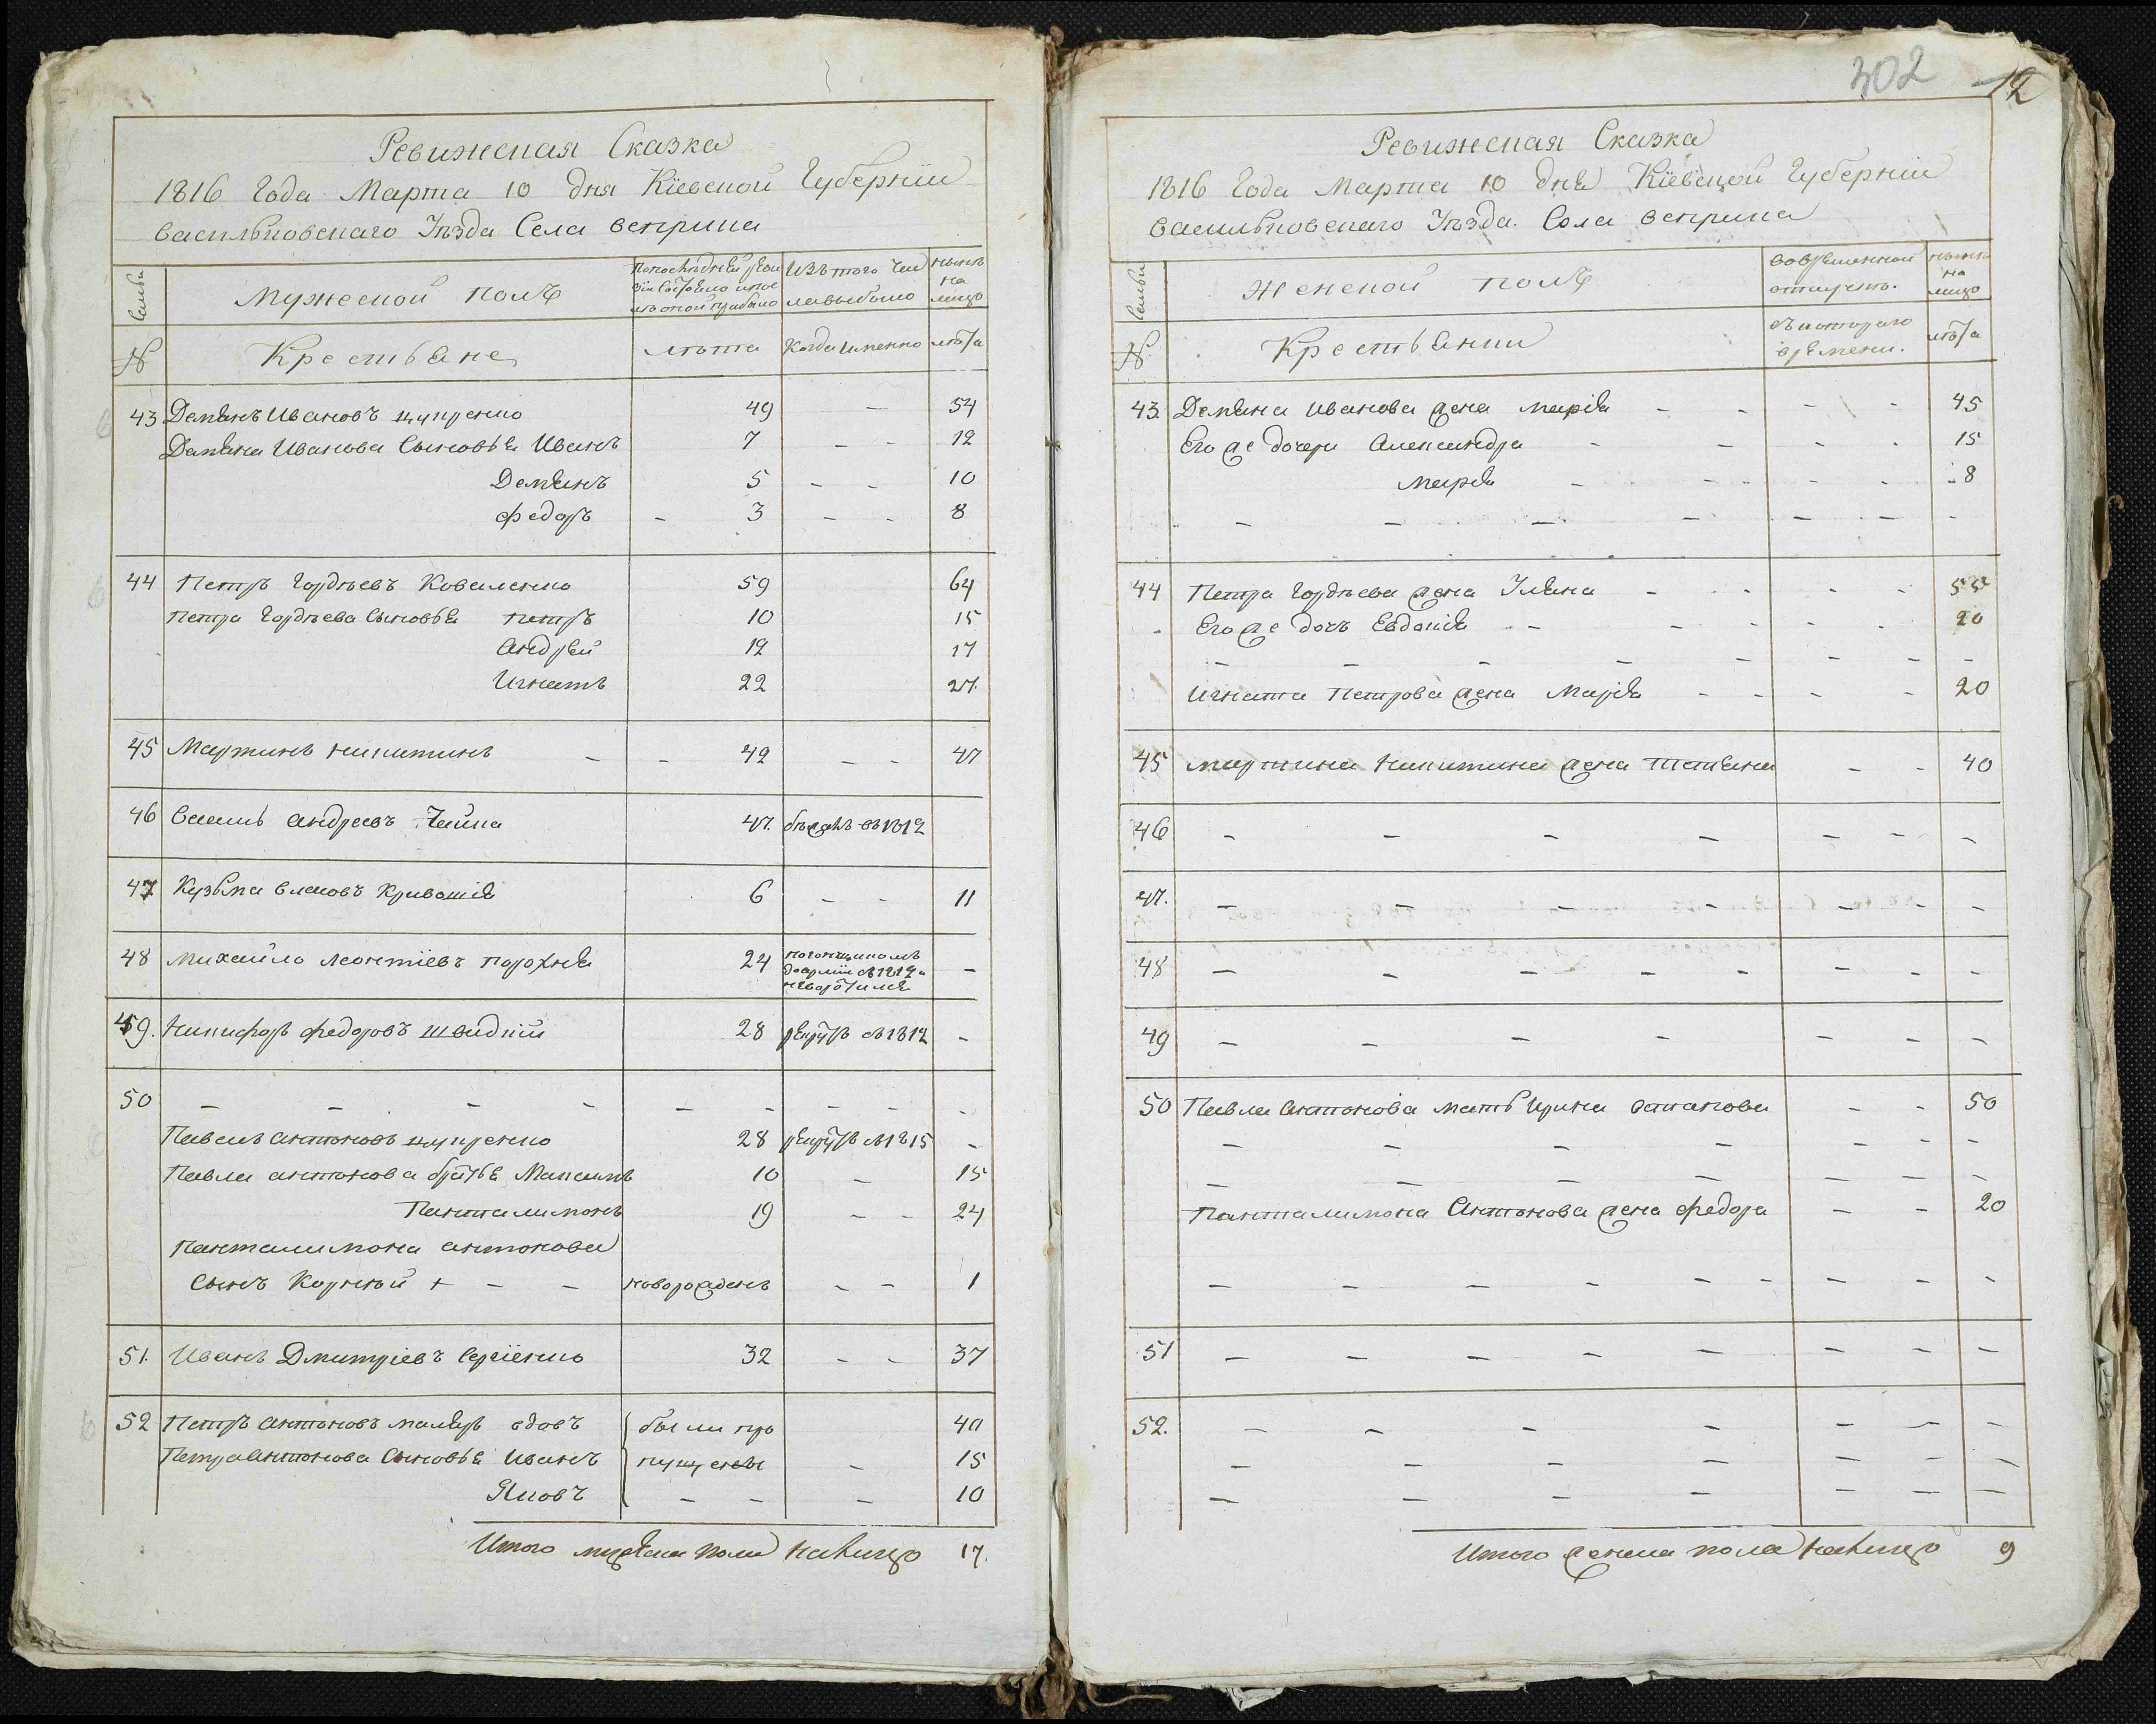 Ревижская Сказка
1816 Года Марта 10 дня Кіевской Губерніи
Васильковскаго Уѣзда Села Веприка
Семьи
Мужеской полъ
По последней реви
зіи состояло и пос
лѣ оной прибыло
Изъ того чис
ла выбыло
нынѣ
на
лицо
№ Крестьяне лѣта Когда именно лѣта
43 Демянъ Ивановъ Цупренко 49 — 54
Демяна Иванова Сыновья Иванъ 7 — - 12
Демянъ 5 - - 10
Федоръ - 3 - - 8
44 Петръ Гордѣевъ Коваленко 59 64
Петра Гордѣева Сыновья Петръ 10 15
Андрей 12 17
Игнатъ 22 27.
45 Мартинъ Никитинъ - - 42 - - 47
46 Василь Андреевъ Чайка 47. бѣжалъ въ 1812
47 Кузьма Власовъ Кривошія 6 - - 11
48 Михайло Леонтіевъ Порохня 24 погонщикомъ
до арміи въ 1812 и
неворотился -
49. Никифоръ Федоровъ Швидкій 28 рекрутъ въ 1812 -
50 - - - - - - - - -
Павелъ Антоновъ Цупренко 28 рекрутъ въ 1815 -
Павла Антонова братья Максимъ 10 - 15
Панталимонъ 19 - - 24
Панталимона Антонова
сынъ Корнѣй + - - новорожденъ - - 1
51. Иванъ Дмитріевъ Сергіенко 32 - - 37
52 Петръ Антоновъ Маляръ вдовъ были про 40
Петра Антонова Сыновья Иванъ пущены - 15
Яковъ - - - 10
Итого мужеска пола налицо 17.
302 12
Ревижская Сказка
1816 Года Марта 10 дня Кіевской Губерніи
Васильковскаго Уѣзда. Села Веприка
Семьи
Женской полъ
во временной
отлучкѣ.
нынѣ
на
лицо
№ Крестьянки
съ котораго
времени.
лѣта
43. Демяна Иванова жена Марія - - - - 45
Его же дочери Александра - - - - 15
Марія - - - - 8
- - - - - - -
44 Петра Гордѣева жена Уляна - - - - 55
Его же дочъ Евдокія - - - - - 20
- - - - - - - -
Игната Петрова жена Марія - - - - 20
45 Мартина Никитина жена Татіяна - - 40
46 - - - - - - -
47. - - - - - - -
48 - - - - - - - -
49 - - - - - - -
50 Павла Антонова мать Ирина - - 50
- - - - - - -
- - - - - - -
Панталимона Антонова жена Федора - - 20
- - - - - - - - -
51 - - - - - - - -
52. - - - - - - -
- - - - - - -
- - - - - - -
Итого женска пола налицо 9